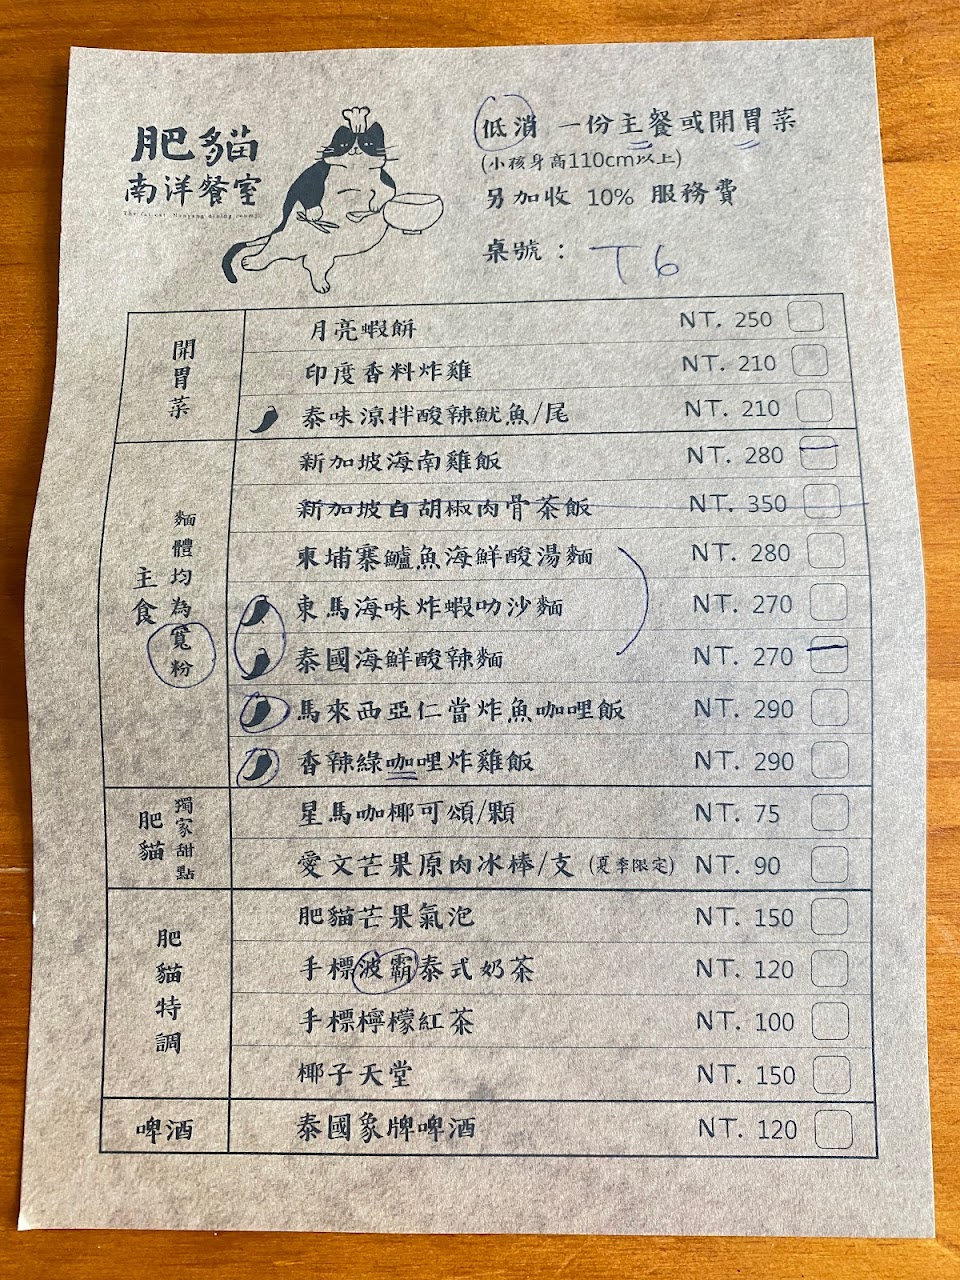 肥貓
南洋餐室
The fat cat Nanyang dining room
低消 一份主餐或開胃菜
(小孩身高110cm以上)
另加收 10% 服務費
桌號： T6
開胃菜
月亮蝦餅 NT. 250
印度香料炸雞 NT. 210
泰味涼拌酸辣魷魚/尾 NT. 210
主食
麵體均為寬粉
新加坡海南雞飯 NT. 280
新加坡白胡椒肉骨茶飯 NT. 350
柬埔寨鱸魚海鮮酸湯麵 NT. 280
東馬海味炸蝦叻沙麵 NT. 270
泰國海鮮酸辣麵 NT. 270
馬來西亞仁當炸魚咖哩飯 NT. 290
香辣綠咖哩炸雞飯 NT. 290
肥貓
獨家甜點
星馬咖椰可頌/顆 NT. 75
愛文芒果原肉冰棒/支 (夏季限定) NT. 90
肥貓特調
肥貓芒果氣泡 NT. 150
手標波霸泰式奶茶 NT. 120
手標檸檬紅茶 NT. 100
椰子天堂 NT. 150
啤酒
泰國象牌啤酒 NT. 120